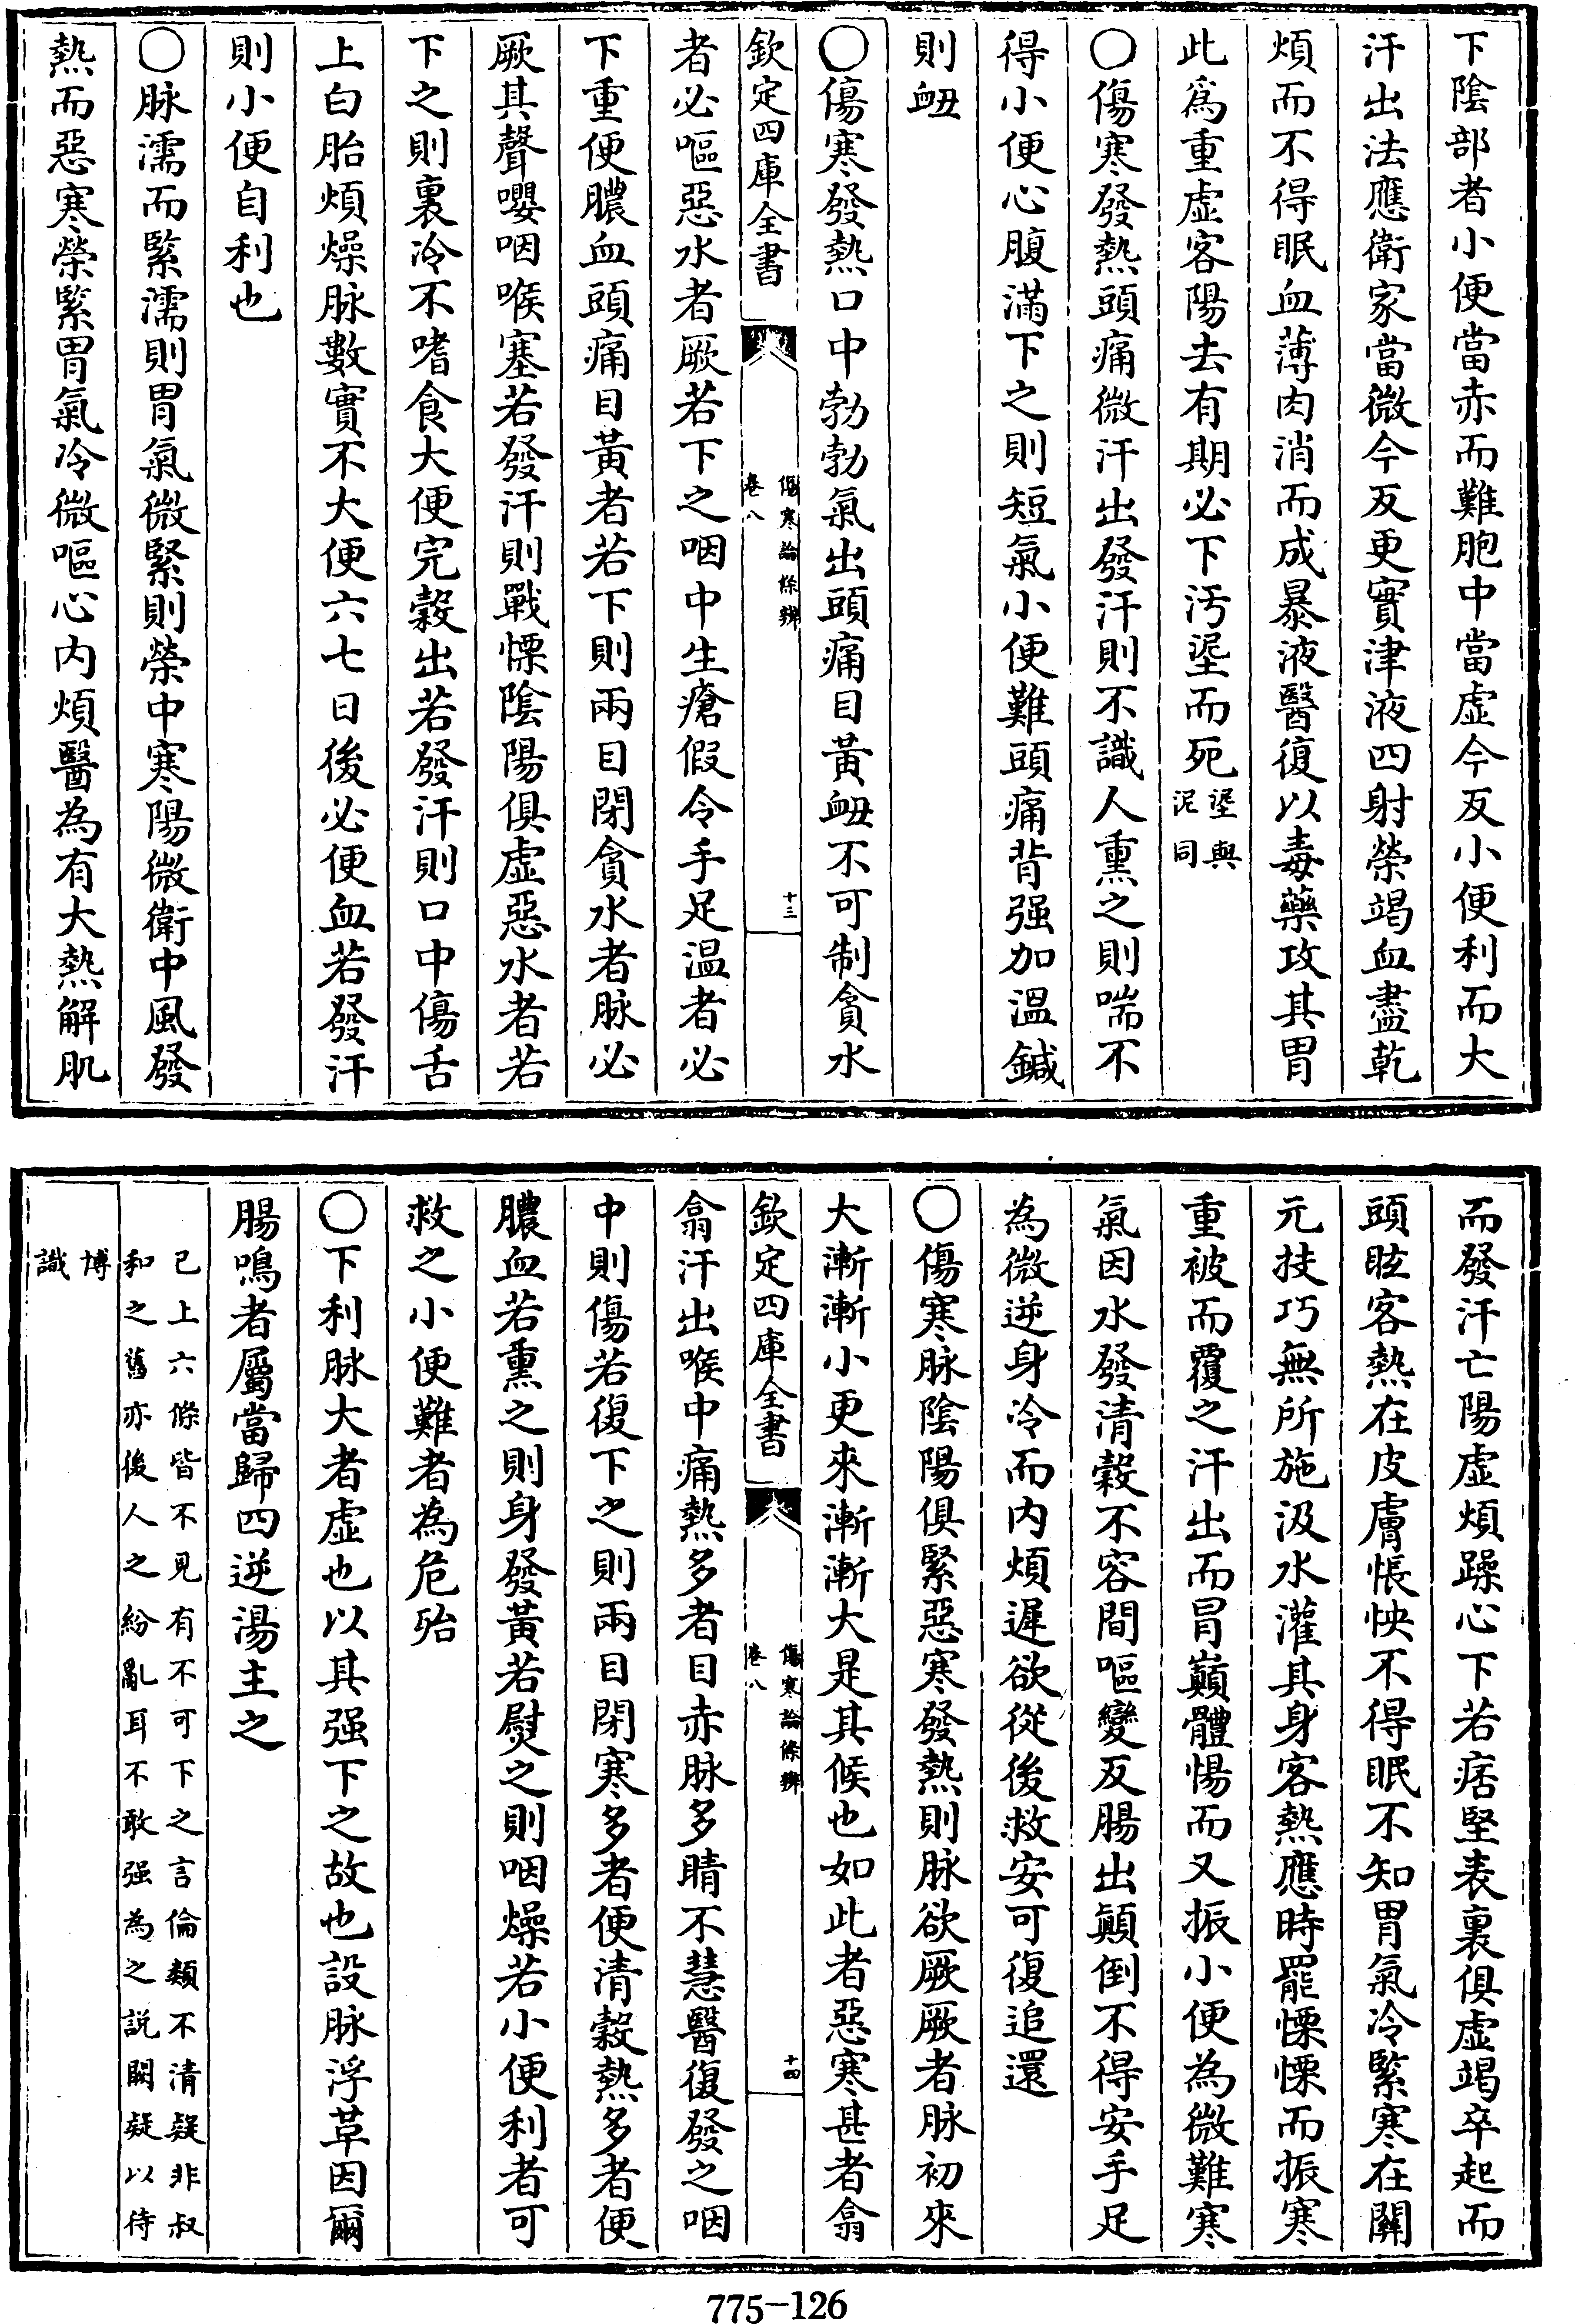 下陰部者小便當赤而難胞中當虛今反小便利而大
汗出法應衛家當微今反更實津液四射榮竭血盡乾
煩而不得眠血薄肉消而成暴液醫復以毒藥攻其胃
此爲重虛客陽去有期必下汚埿而死埿與泥同
〇傷寒發熱頭痛微汗出發汗則不識人熏之則喘不
得小便心腹滿下之則短氣小便難頭痛背强加溫鍼
則衄
〇傷寒發熱口中勃勃氣出頭痛目黃衄不可制貪水
欽定四庫全書
傷寒論條辨
卷八
十三
者必嘔惡水者厥若下之咽中生瘡假令手足温者必
下重便膿血頭痛目黃者若下則兩目閉貪水者脉必
厥其聲嚶咽喉塞若發汗則戰慄陰陽俱虛惡水者若
下之則裏冷不嗜食大便完穀出若發汗則口中傷舌
上白胎煩燥脉數實不大便六七日後必便血若發汗
則小便自利也
〇脉濡而緊濡則胃氣微緊則榮中寒陽微衛中風發
熱而惡寒榮緊胃氣冷微嘔心内煩醫為有大熱解肌
而發汗亡陽虛煩躁心下若痞堅表裏俱虛竭卒起而
頭眩客熱在皮膚悵怏不得眠不知胃氣冷緊寒在關
元技巧無所施汲水灌其身客熱應時罷慄慄而振寒
重被而覆之汗出而冒巔體惕而又振小便為微難寒
氣因水發清穀不容間嘔變反腸出顚倒不得安手足
為微逆身冷而内煩遲欲從後救安可復追還
〇傷寒脉陰陽俱緊惡寒發熱則脉欲厥厥者脉初來
大漸漸小更來漸漸大是其候也如此者惡寒甚者翕
欽定四庫全書
傷寒論條辨
卷八
十四
翕汗出喉中痛熱多者目赤脉多睛不慧醫復發之咽
中則傷若復下之則兩目閉寒多者便清穀熱多者便
膿血若熏之則身發黃若熨之則咽燥若小便利者可
救之小便難者為危殆
〇下利脉大者虛也以其强下之故也設脉浮革因爾
腸鳴者屬當歸四逆湯主之
已上六條皆不見有不可下之言倫類不清疑非叔
和之舊亦後人之紛亂耳不敢强為之説闕疑以待
博
識
775-126